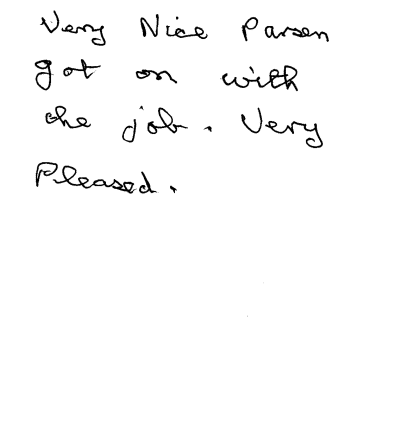 Very Nice Parson
got on with
the job. Very
Pleased.